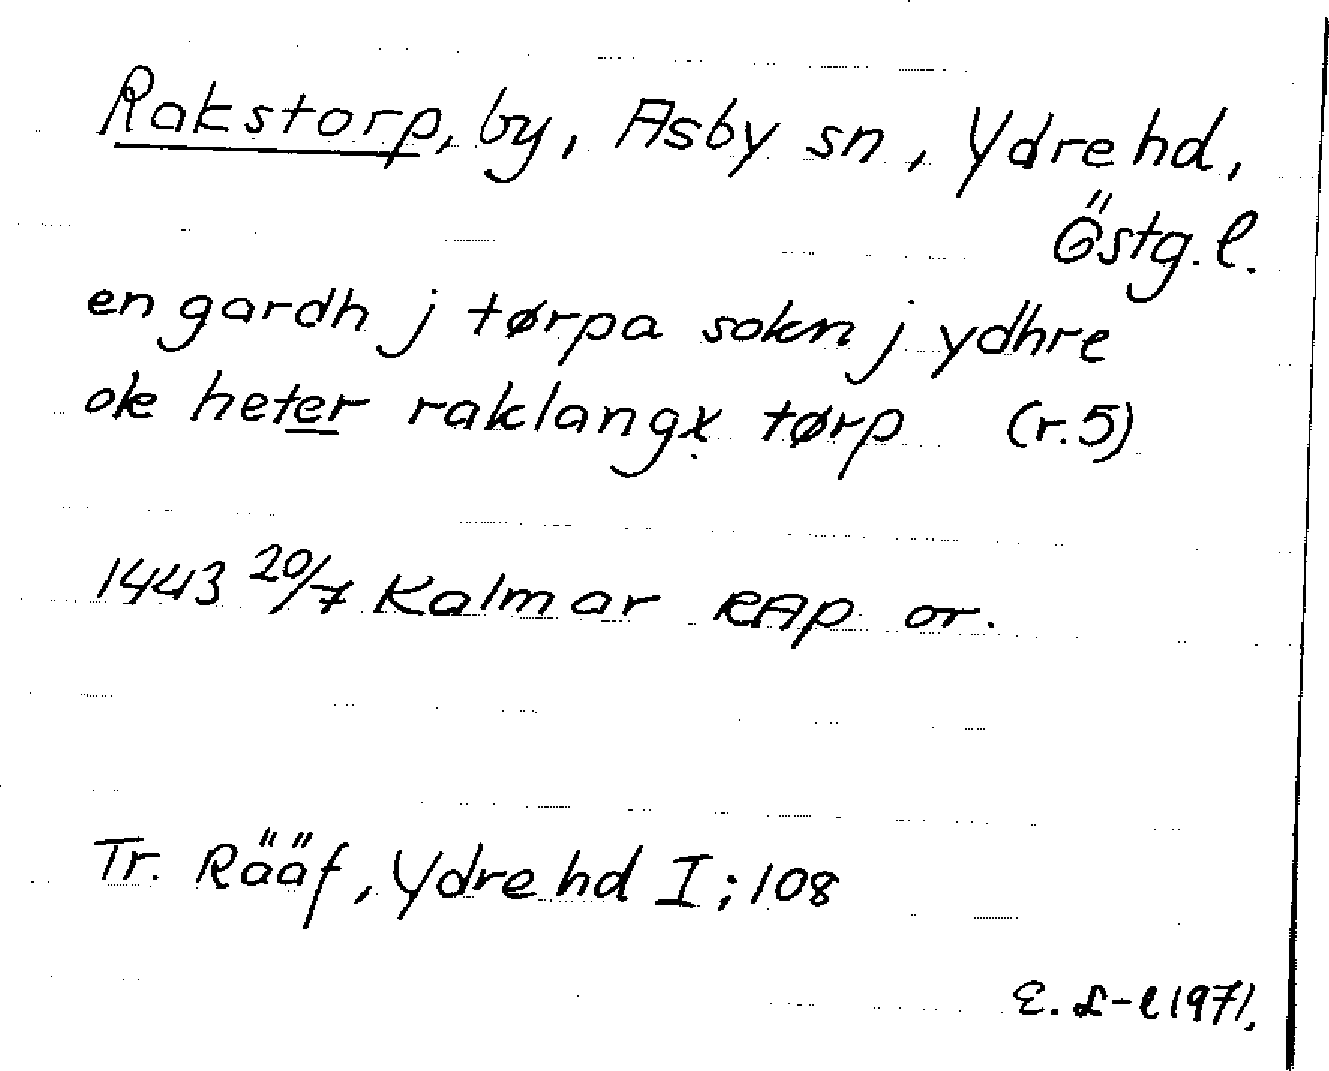 Rakstorp, by, Asby sn, Ydre hd,
Östg. l.
en gardh j tørpa sokn j ydhre
ok heter raklangx tørp (r.5)
1443 20/7 Kalmar RAp or.
Tr. Rääf, Ydre hd I; 108
E. L-l 1971.